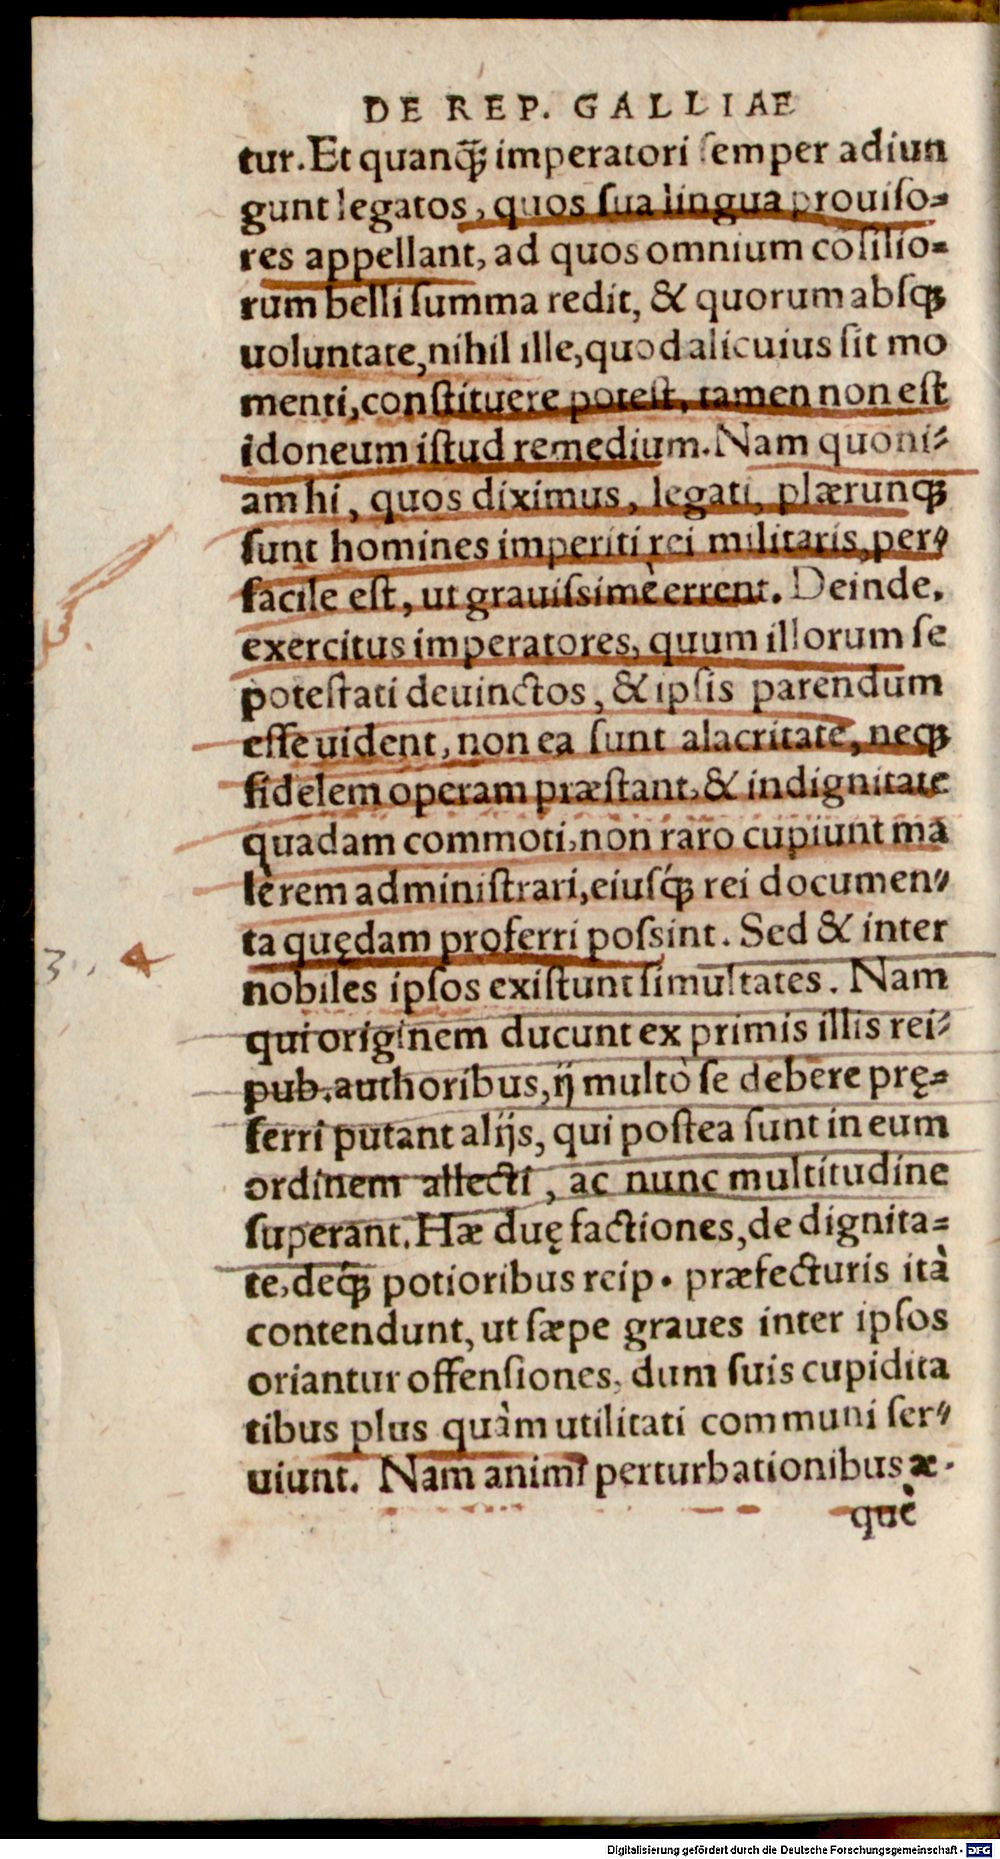 DE REP. GALLIAE
tur. Et quanq̃; imperatori semper adiun
gunt legatos, quos sua lingua prouiso=
res appellant, ad quos omnium cõsilio=
rum belli summa redit, & quorum absq;
uoluntate, nihil ille, quod alicuius sit mo
menti, constituere potest, tamen non est
idoneum istud remedium. Nam quoni=
am hi, quos diximus, legati, plærunq;
sunt homines imperiti rei militaris, per=
facile est, ut grauissimè errent. Deinde,
exercitus imperatores, quum illorum se
potestati deuinctos, & ipsis parendum
esse uident, non ea sunt alacritate, neq;
fidelem operam præstant, & indignitate
quadam commoti, non raro cupiunt ma
lè rem administrari, eiusq́; rei documen=
ta quędam proferri possint. Sed & inter
nobiles ipsos existunt simultates. Nam
qui originem ducunt ex primis illis rei=
pub. authoribus, ij multò se debere prę=
ferri putant alijs, qui postea sunt in eum
ordinem allecti, ac nunc multitudine
superant. Hæ duę factiones, de dignita=
te, deq́; potioribus reip. præfecturis ità
contendunt, ut sæpe graues inter ipsos
oriantur offensiones, dum suis cupidita
tibus plus quàm utilitati communi ser=
uiunt. Nam animi perturbationibus æ-
què
3.
Digitalisierung gefördert durch die Deutsche Forschungsgemeinschaft - DFG